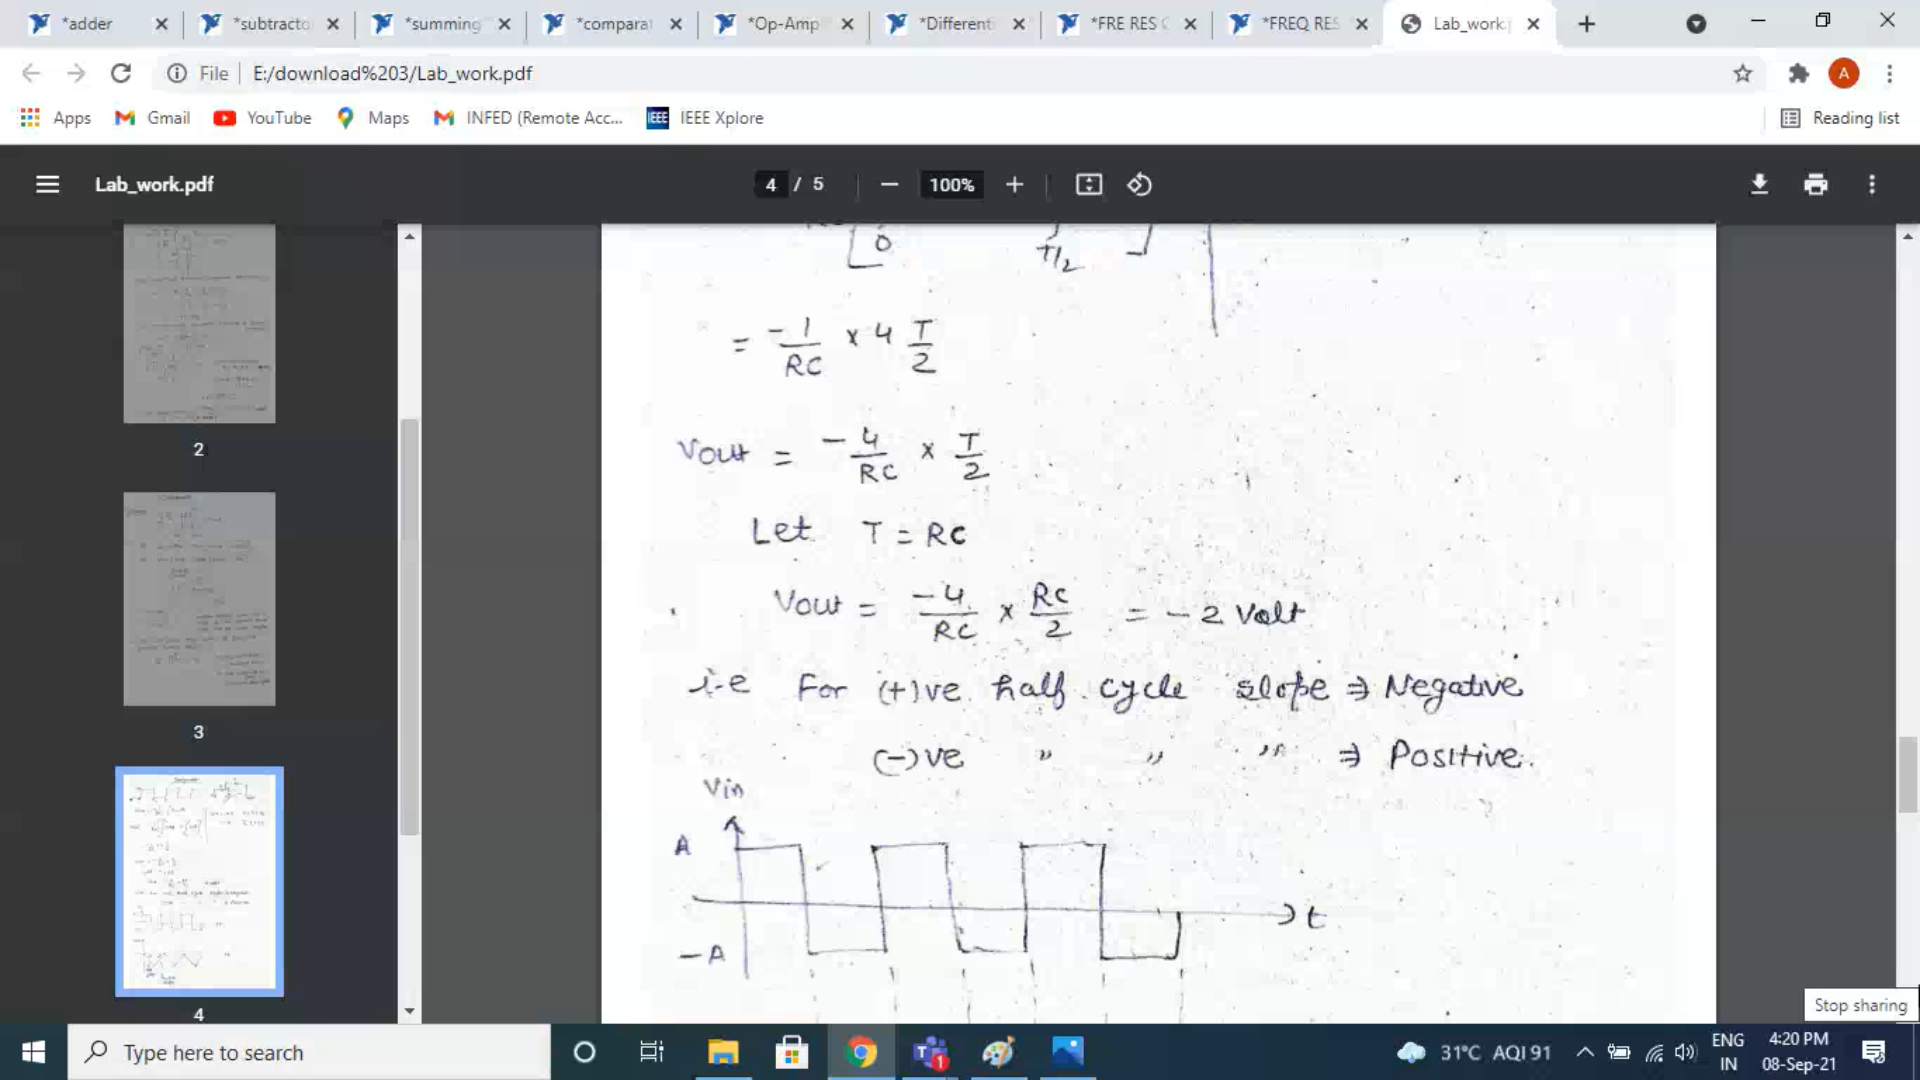 *adder
*subtracto
*summing
*comparat
*Op-Amp
*Differenti
*FRE RES C
*FREQ RES
Lab_work.p
File
E:/download%203/Lab_work.pdf
A
Apps
Gmail
YouTube
Maps
INFED (Remote Acc...
IEEE
IEEE Xplore
Reading list
Lab_work.pdf
4 / 5
100%
2
3
4
0 T/2
= -1/RC × 4 T/2
Vout = -4/RC × T/2
Let T = RC
Vout = -4/RC × RC/2 = -2 Volt
i.e For (+)ve half cycle slope ⇒ Negative
(-)ve " " " ⇒ Positive.
Vin
A
t
-A
Stop sharing
Type here to search
1
31°C AQI 91
ENG
IN
4:20 PM
08-Sep-21